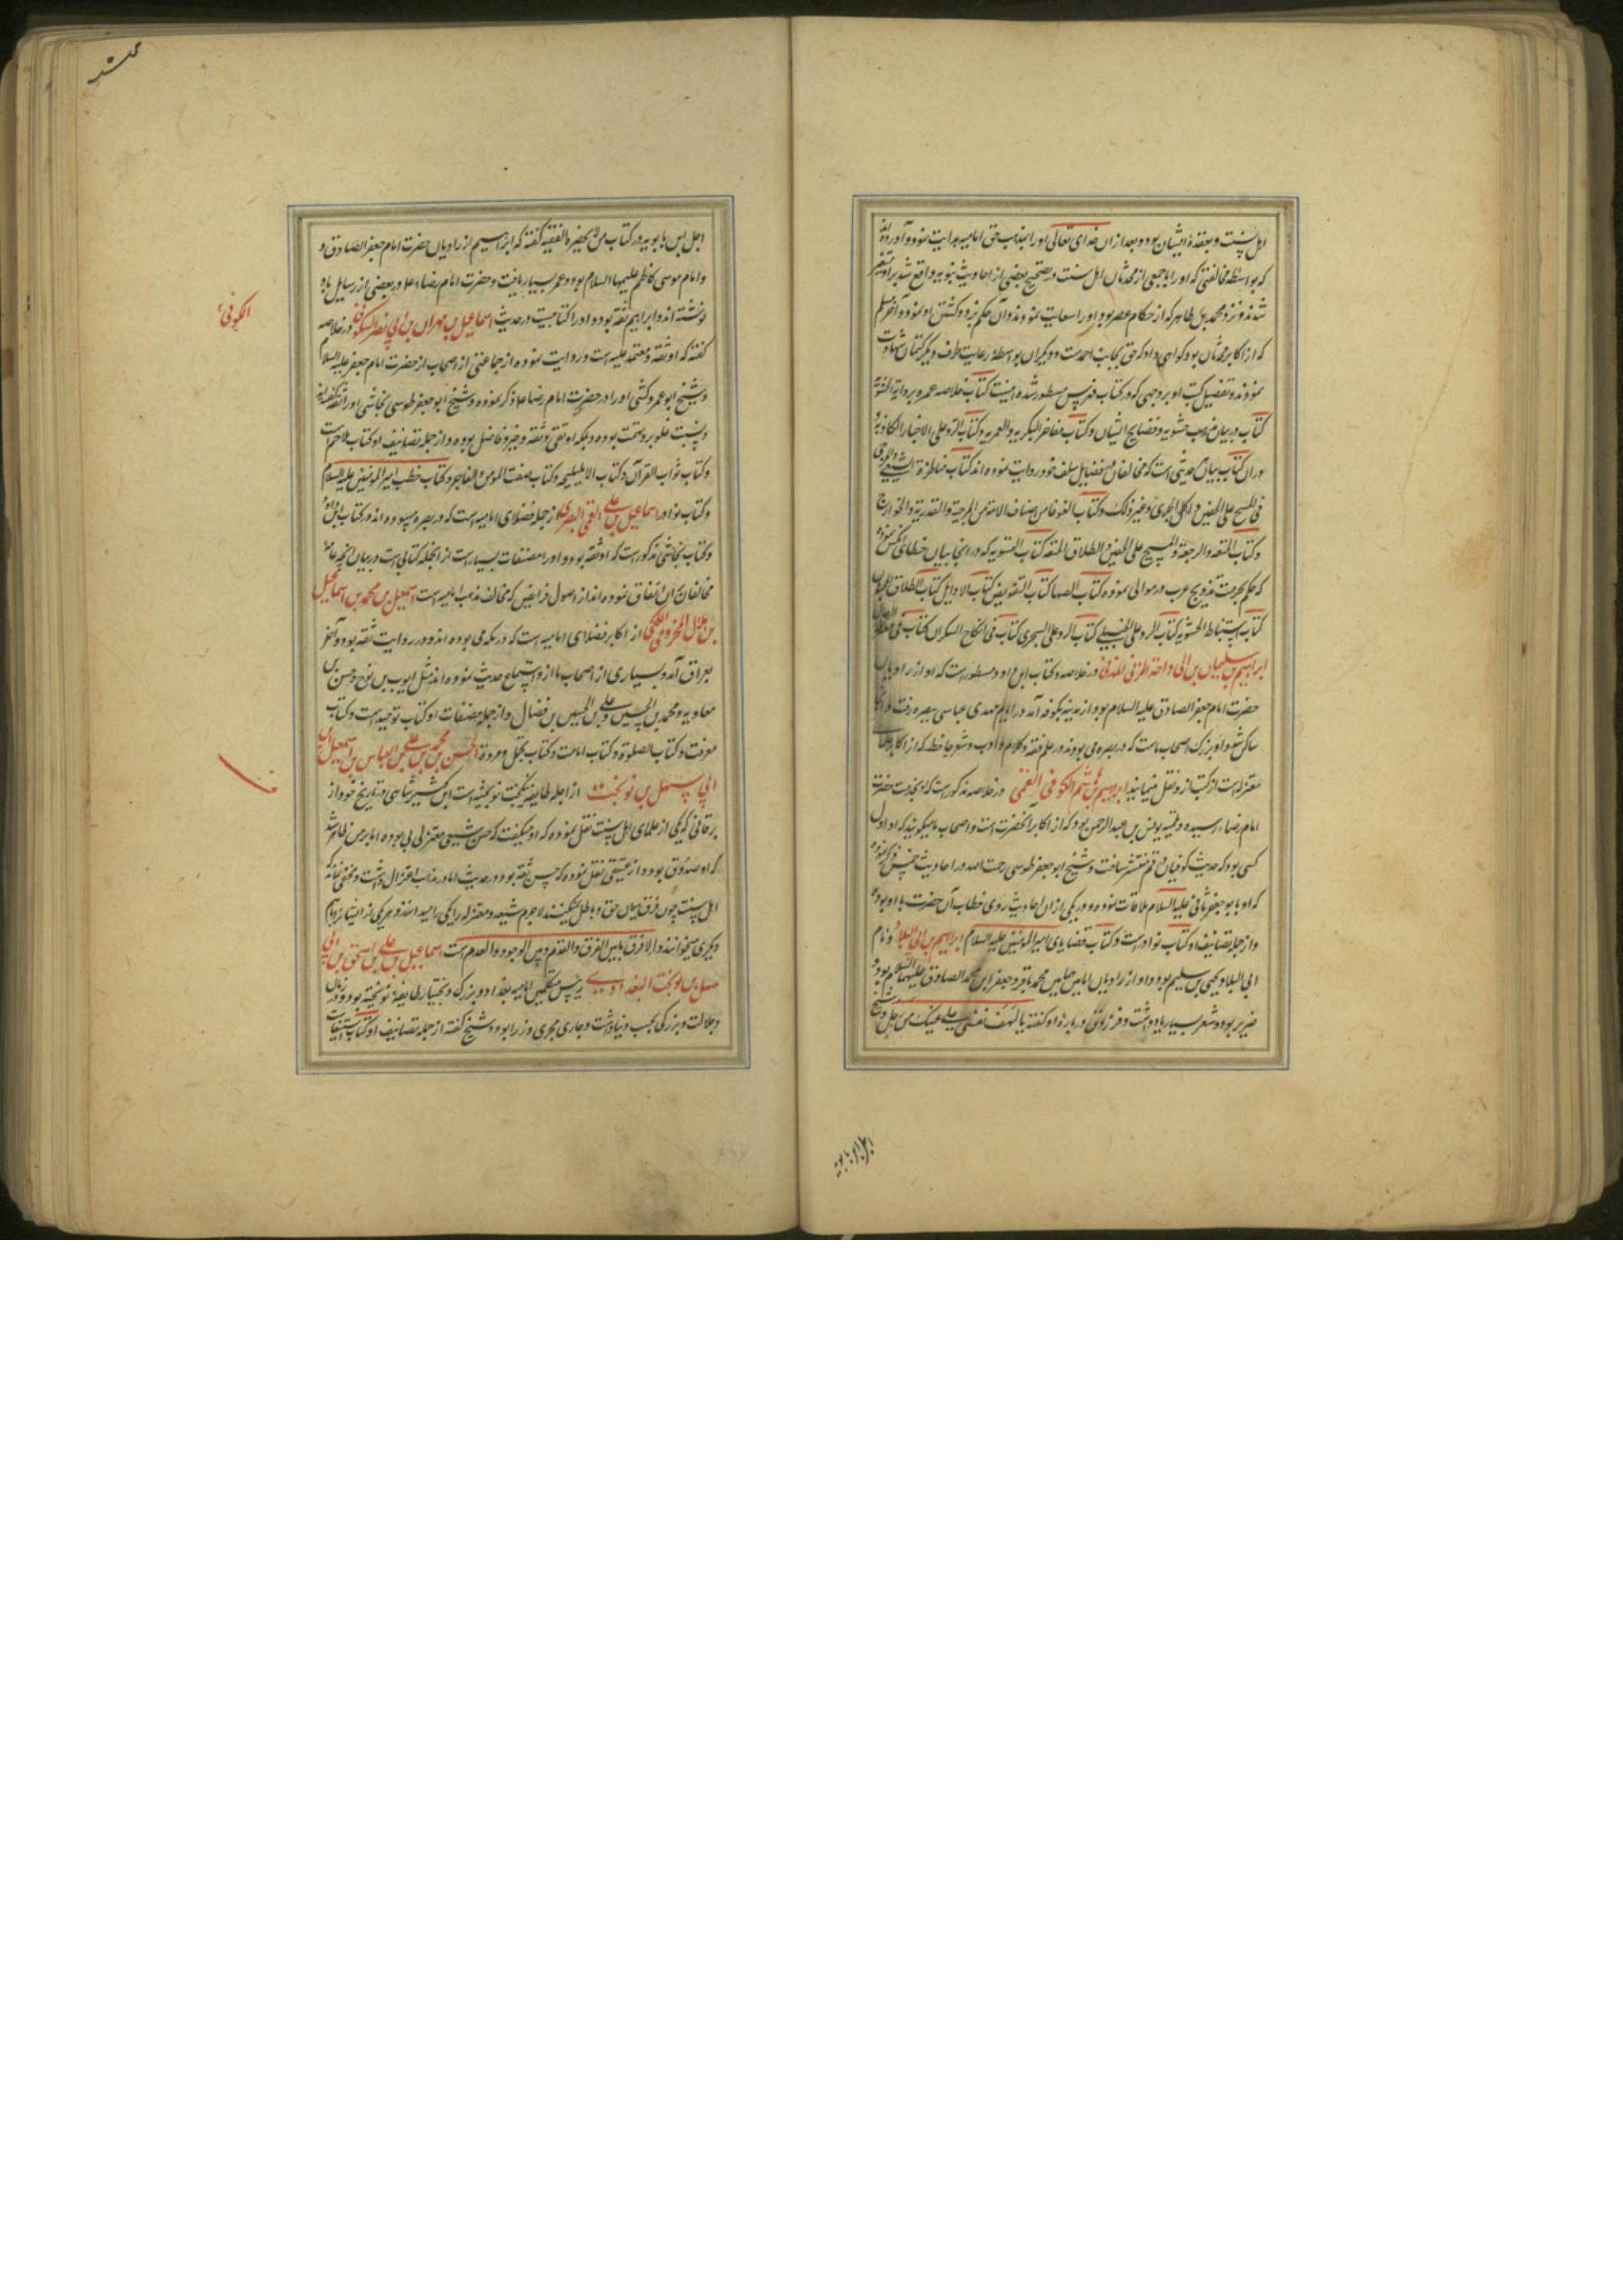 اهل سنت و بعقدهٔ ایشان بود و بعد ازان خدای تعالی او را بمذهب حق امامیه هدایت نمود و آورده‌اند
که بواسطه مخالفتی که او را با جمعی از محدثان اهل سنت در تصحیح بعضی از احادیث نبویه واقع شد برو متغیر
شدند و نزد محمد بن طاهر که از حکام عصر بود او را سعایت نمودند و آن حکم بزد و کشتن او نمود و آخر مسلم
که از اکابر محدثان بود گواهی داد که حق بجانب احمدست و دیگران بواسطهٔ رعایت طرف دیگر کتمان شهادت
نمودند و تفصیل کتب او بر وجهی که در کتاب فهرس مسطور شده اینست کتاب خلاصه عمر بروایة الحشویه
کتاب در بیان مذهب حشویه و فضایح ایشان و کتاب مفاخر البکریه و العمریه و کتاب الرد علی الاخبار الکاذبه و
دران کتاب بیان حدیثی است که مخالفان در فضایل سلف خود روایت نموده‌اند کتاب مناظرة الشیعی و المرجی
فی المسح علی الخفین و اکل الجری و غیر ذلک و کتاب الغوغا من اصناف الامة من المرجئة و القدریة و الخوارج
و کتاب المتعه و الرجعة و المسح علی الخفین و الطلاق المتعه کتاب التسویه که در انجا بیان خطای
که حکم بحرمت تزویج عرب در موالی نموده کتاب الصهاکی کتاب التفویض کتاب الاوایل کتاب الطلاق
کتاب استنباط الحشویه کتاب الرد علی الحنبلی کتاب الرد علی السجزی کتاب فی انکاح السکران کتاب فی
ابراهیم بن سلیمان بن ابی داحه المزنی المدنی در خلاصه و کتاب ابن داود مسطورست که او از راویان
حضرت امام جعفر الصادق علیه السلام بود و از مدینه بکوفه آمد در ایام مهدی عباسی ببصره رفت و آنجا
ساکن شد و او بزرگ اصحاب ماست که در بصره می بودند در علم فقه و کلام و ادب و شعر جاحظ که از اکابر علمای
معتزله است از کتب ازو نقل مینماید ابراهیم بن هاشم الکوفی القمی در خلاصه مذکور است که او بخدمت حضرت
امام رضاء رسیده و تلمیذ یونس بن عبد الرحمن بود که از اکابر آنحضرت است و اصحاب ما میگویند که او اول
کسی بود که حدیث کوفیان در قم منتشر ساخت و شیخ ابو جعفر طوسی رحمت الله در احادیث خمس ذکر نموده
که او با ابو جعفر ثانی علیه السلام ملاقات نموده و در یکی ازان احادیث روی خطاب آن حضرت با او بوده
و از جمله تصانیف او کتاب نوادر است و کتاب قضایای امیر المؤمنین علیه السلام ابراهیم بن ابی البلاد و نام
ابی البلاد یحیی بن سلیم بود و او از راویان امامین همامین محمد باقر و جعفر ابن محمد الصادق علیهما السلام بود و
ضریر بود و شعر بسیار یاد داشت و فرزدق درباره او گفته یا لهف نفسی علی عینیک من رجل و شیخ
اجل ابن بابویه
اجل ابن بابویه در کتاب من لا یحضره الفقیه گفته که ابراهیم از راویان حضرت امام جعفر الصادق و
و امام موسی کاظم علیهما السلام بود و عمر بسیار یافت و حضرت امام رضاء علیه در بعضی از رسایل باو
نوشته‌اند و ابراهیم ثقه بود و او را کتابیست در حدیث اسماعیل بن مهران بن ابی نصر السکونی در خلاصه
الکوفی
گفته که او ثقه و معتمد علیه است و روایت نموده از جماعتی از اصحاب از حضرت امام جعفر علیه السلام
و شیخ ابو عمرو کشی او را در حضرت امام رضا علیه ذکر نموده و شیخ ابو جعفر طوسی و نجاشی او را ثقه گفته‌اند
و نسبت غلو برو تهمت بوده و بلکه او تقی و ثقه و خیر و فاضل بوده و از جمله تصانیف او کتاب ملاحم است
و کتاب ثواب القرآن و کتاب الاهلیلجه و کتاب صفت المومن و الفاجر و کتاب خطب امیر المومنین علیه السلام
و کتاب نوادر اسماعیل بن علی القمی البصری از جمله فضلای امامیه است که در بصره میبوده‌اند در کتاب ابن داود
و کتاب نجاشی مذکور است که او ثقه بود و او را مصنفات بسیار است از انجمله کتابی است در بیان انچه عامه
مخالفان آن اتفاق نموده‌اند از اصول فرایض که مخالف مذهب امامیه است اسمعیل بن محمد بن اسماعیل
بن هلال المخزومی المکی از اکابر فضلای امامیه است که در مکه می بوده‌اند و در روایت ثقه بود و آخر
بعراق آمد و بسیاری از اصحاب ما ازو استماع حدیث نموده‌اند مثل ایوب بن نوح و حسن بن
معاویه و محمد بن الحسین و علی بن الحسین بن فضال و از جمله مصنفات او کتاب توحید است و کتاب
معرفت و کتاب الصلوة و کتاب امامت و کتاب تجمل و مروة الحسن بن محمد بن علی بن العباس بن اسمعیل بن
ابی سهل بن نوبخت از اجله طایفه نوبختیه است ابن کثیر شامی در تاریخ خود از
برقانی که یکی از علمای اهل سنت نقل نموده که او میگفت که حسن شیعی معتزلی بوده اما بر من ظاهر شد
که او صدوق بود و از عتیقی نقل نموده که حسن ثقه بود در حدیث اما در مذهب اعتزال داشت و مخفی نماند که
اهل سنت چون فرق میان حق و باطل نمیکنند لاجرم شیعه و معتزله را یکی دانسته‌اند و هر یکی از ایشان را بنام
دیگری میخوانند و الا فرق ما بین الفرق و القدم و بین الوجود و العدم است اسماعیل بن علی بن اسحق بن ابی
سهل بن نوبخت البغدادی رئیس متکلمین امامیه بغداد و بزرگ و بختیار طایفه نوبختیه بود در زمان
و جلالت و بزرگی بحسب دنیا داشت و جاری مجری وزرا بود و شیخ گفته از جمله تصانیف او کتاب استیفاست